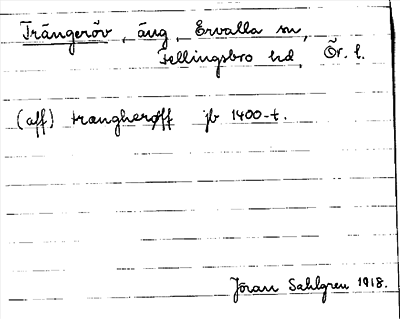 Trängeröv, äng, Ervalla sn,
Fellingsbro hd, Ör. l.
(aff) trangherøff jb 1400-t.
Jöran Sahlgren 1918.